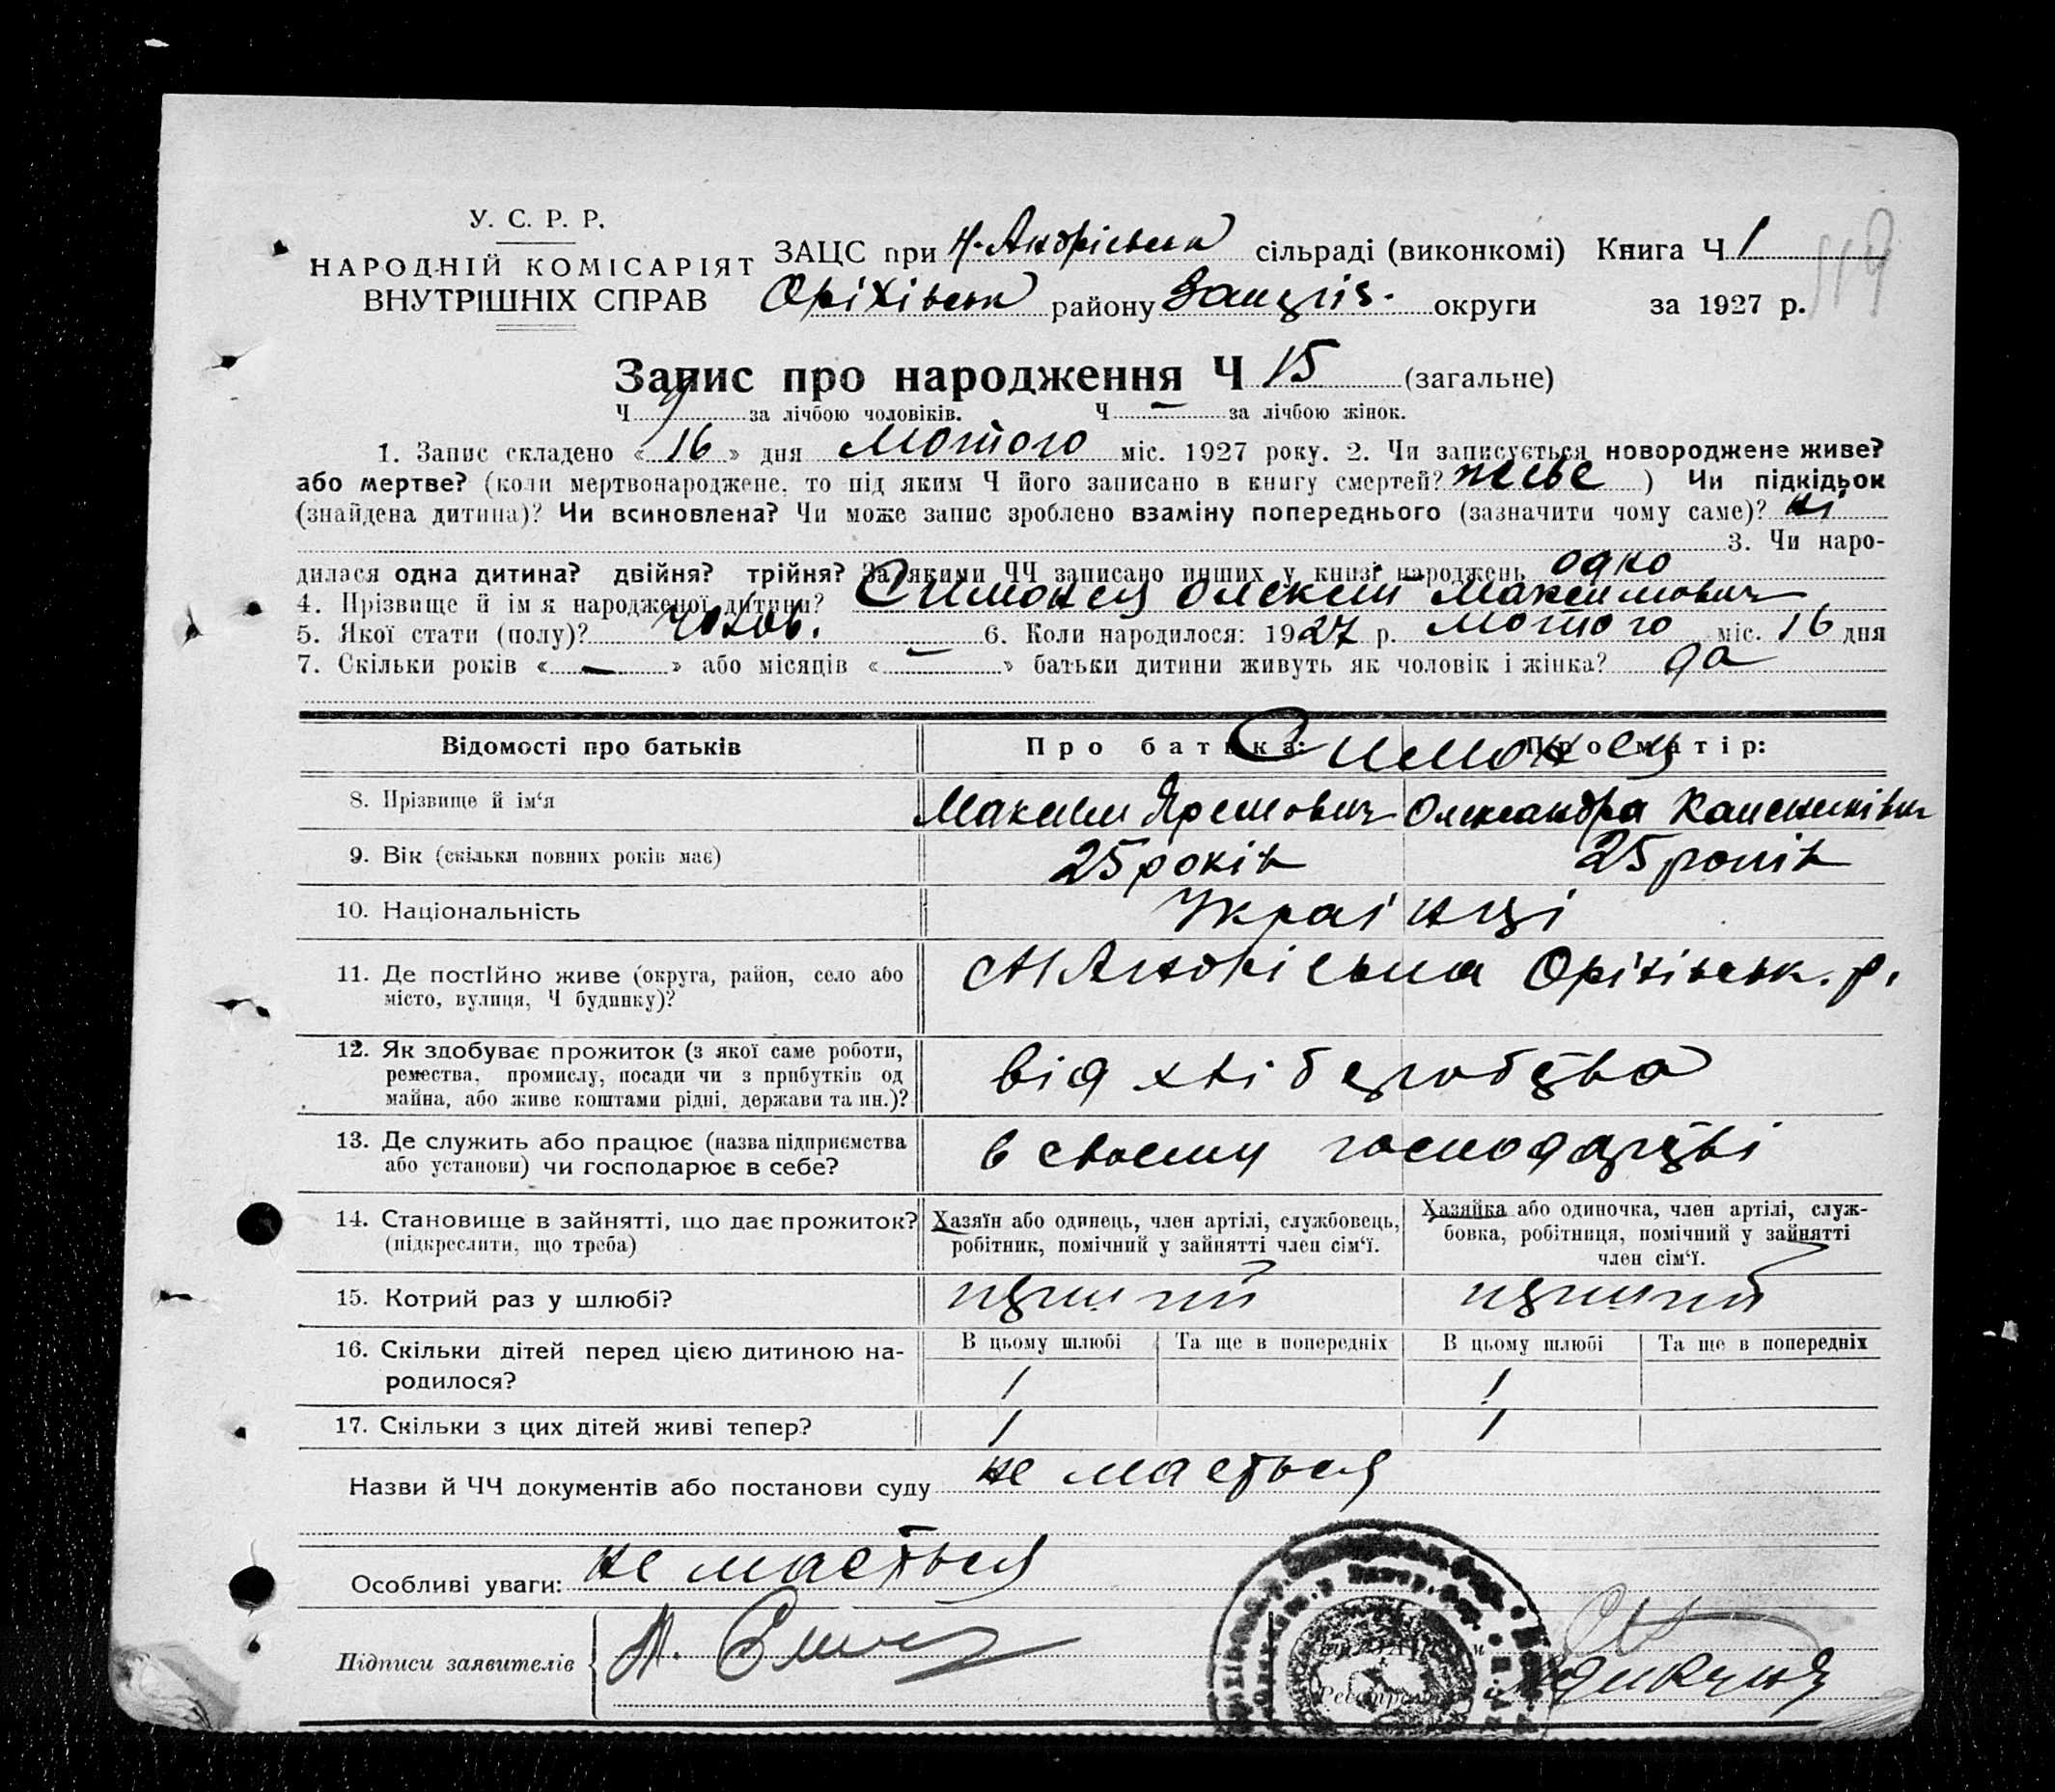 У. С. Р. Р.
НАРОДНІЙ КОМІСАРІЯТ
ВНУТРІШНІХ СПРАВ
ЗАЦС при Н-Андрієвськ сільраді (виконкомі) Книга Ч 1
Оріхівськ району Запоріз. округи за 1927 р.
119
Запис про народження Ч 15 (загальне)
Ч 9 за лічбою чоловіків. Ч — за лічбою жінок.
1. Запис складено « 16 » дня Лютого міс. 1927 року. 2. Чи записується новороджене живе?
або мертве? (коли мертвонароджене, то під яким Ч його записано в книгу смертей? живе ) Чи підкідьок
(знайдена дитина)? Чи всиновлена? Чи може запис зроблено взаміну попереднього (зазначити чому саме)? ні
3. Чи наро-
дилася одна дитина? двійня? трійня? За якими ЧЧ записано инших у книзі народжень одно
4. Прізвище й ім я народженої дитини? Симонец Олексій Максимович
5. Якої стати (полу)? чолов. 6. Коли народилося: 1927 р. Лютого міс. 16 дня
7. Скільки років « — » або місяців « — » батьки дитини живуть як чоловік і жінка? да
Відомості про батьків Про батька: Про матір:
Симонец
8. Прізвище й ім‘я Максим Яремович Олександра
9. Вік (скільки повних років має) 25 років 25 років
10. Національність Українці
11. Де постійно живе (округа, район, село або
місто, вулиця, Ч будинку)?
Оріхівськ. р.
12. Як здобуває прожиток (з якої саме роботи,
ремества, промислу, посади чи з прибутків од
майна, або живе коштами рідні, держави та ин.)?
від хлібороб
13. Де служить або працює (назва підприємства
або установи) чи господарює в себе?
в своєму господарстві
14. Становище в зайнятті, що дає прожиток?
(підкреслити, що треба)
Хазяїн або одинець, член артілі, службовець,
робітник, помічний у зайнятті член сім‘ї.
Хазяйка або одиночка, член артілі, служ-
бовка, робітниця, помічний у зайнятті
член сім‘ї.
15. Котрий раз у шлюбі? перший перший
16. Скільки дітей перед цією дитиною на-
родилося?
В цьому шлюбі Та ще в попередніх В цьому шлюбі Та ще в попередніх
1 1
17. Скільки з цих дітей живі тепер? 1 1
Назви й ЧЧ документів або постанови суду не мається
Особливі уваги: не мається
Підписи заявителів